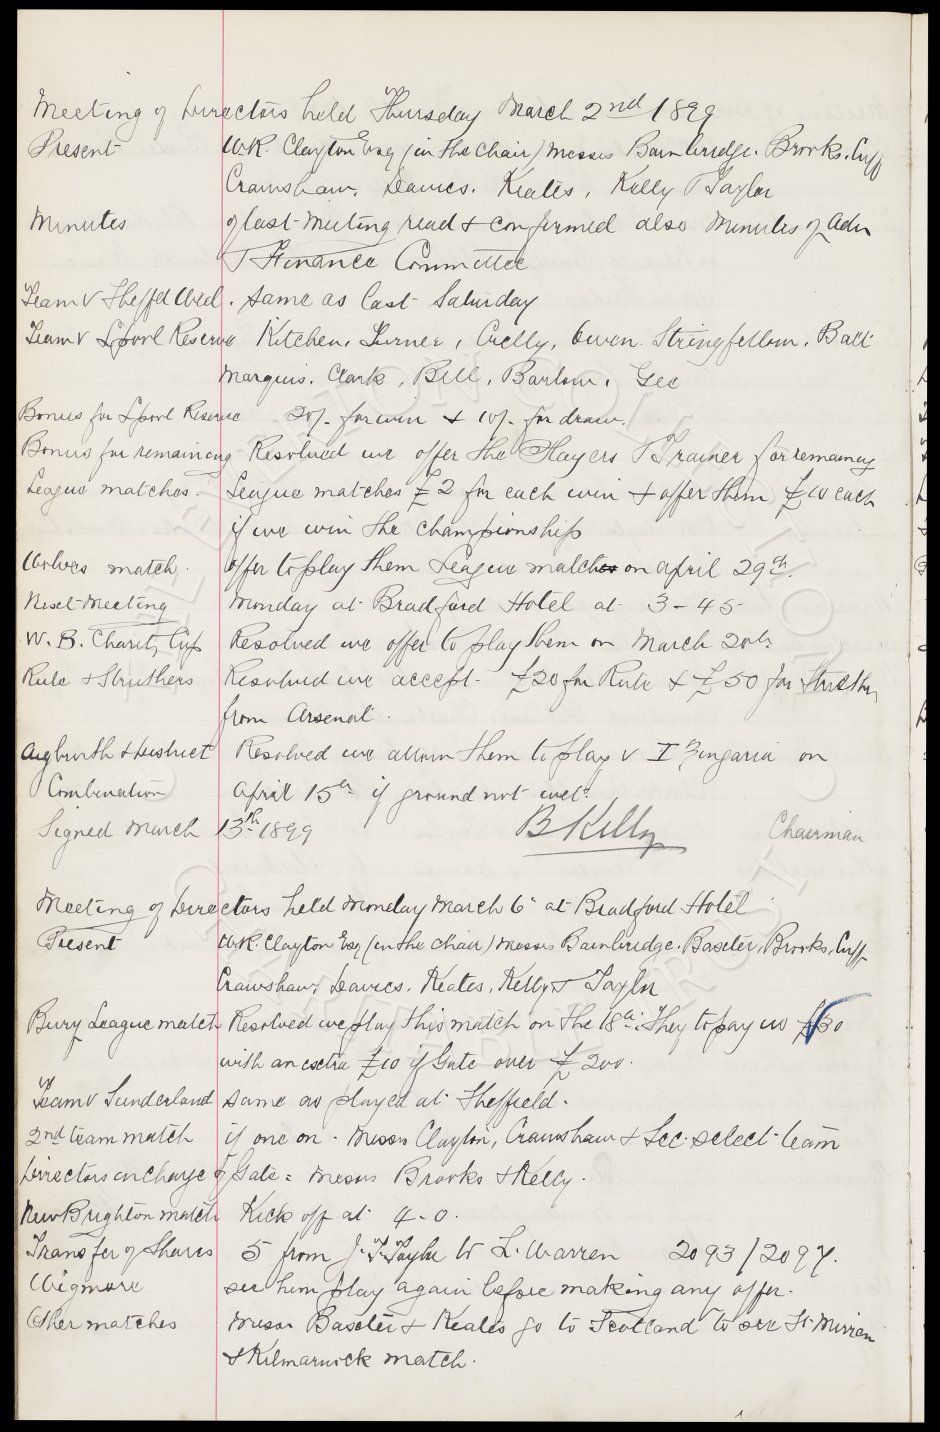 Meeting of Directors held Thursday March 2nd 1899
Present W.R. Clayton Esq (in the Chair) Messrs Bainbridge. Brooks. Cuff
Crawshaw, Davies. Keates, Kelly & Taylor
Minutes of last meeting read & confirmed also Minutes of Adn
& Finance Committee
Team V Sheffd Wed. same as last Saturday
Team V Lpool Reserve Kitchen, Turner, Crelly, Owen. Stringfellow, Ball
Marquis. Clark, Bell, Barlow, Gee
Bonus for Lpool Reserve 20/- for win & 10/- for draw.
Bonus for remaining Resolved we offer the Players & Trainer for remaining
League matches. League matches £2 for each win & offer them £10 each
if we win the Championship
Wolves match. offer to play them League match on april 29th.
Next Meeting Monday at Bradford Hotel at 3-45
W.B. Charity Cup Resolved we offer to play them on March 20th
Rule & Struthers Resolved we accept £20 for Rule & £50 for Struthers
from Arsenal.
Aigburth & District Resolved we allow them to play v I Zingaria on
Combination April 15th if ground not wet.
Signed March 13th 1899 B Kelly Chairman
Meeting of Directors held Monday March 6th at Bradford Hotel
Present W.R. Clayton Esq (in the Chair) Messrs Bainbridge. Baxter, Brooks, Cuff
Crawshaw, Davies. Keates, Kelly & Taylor
Bury League match Resolved we play this match on the 18th. They to pay us £30
with an extra £10 if Gate over £200.
Team V Sunderland same as played at Sheffield.
2nd team match if one on. Messrs Clayton, Crawshaw & Sec. select team
Directors in charge of Gate = Messrs Brooks & Kelly.
New Brighton match Kick off at 4-0.
Transfer of Shares 5 from J. F. Taylor to L. Warren 2093/2097.
Wigmore see him play again before making any offer.
Other matches Messrs Baxter & Keates go to Scotland to see St Mirren
& Kilmarnock match.